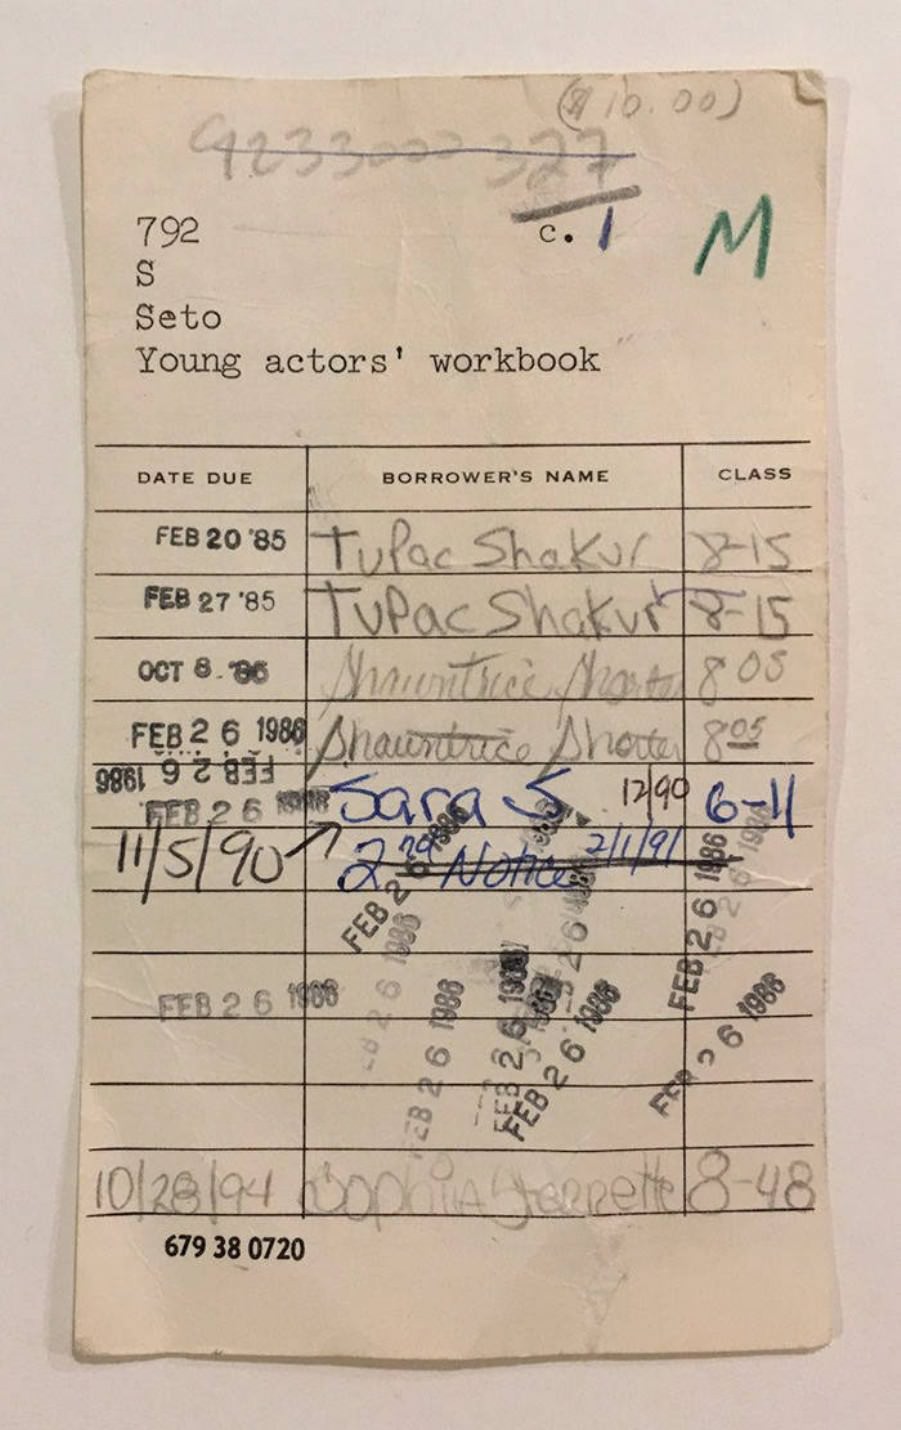 ($10.00)
4233000 327
792 c. 1 M
S
Seto
Young actors' workbook
DATE DUE BORROWER'S NAME CLASS
FEB 20 '85 Tupac Shakur 8-15
FEB 27 '85 TuPac Shakur 8-15
OCT 8 '86 Shauntrice Shorter 8 05
FEB 26 1986 Shauntrice Shorter 8 05
FEB 26 1986
FEB 26 Sara S 12/90 6-11
11/5/90 2nd Notice 2/1/91
FEB 26 1986
FEB 26 1986
FEB 26 1986
FEB 26 1986
FEB 26 1986
FEB 26 1986
FEB 26 1986
FEB 26 1986
10/28/94 Sophia 8-48
679 38 0720